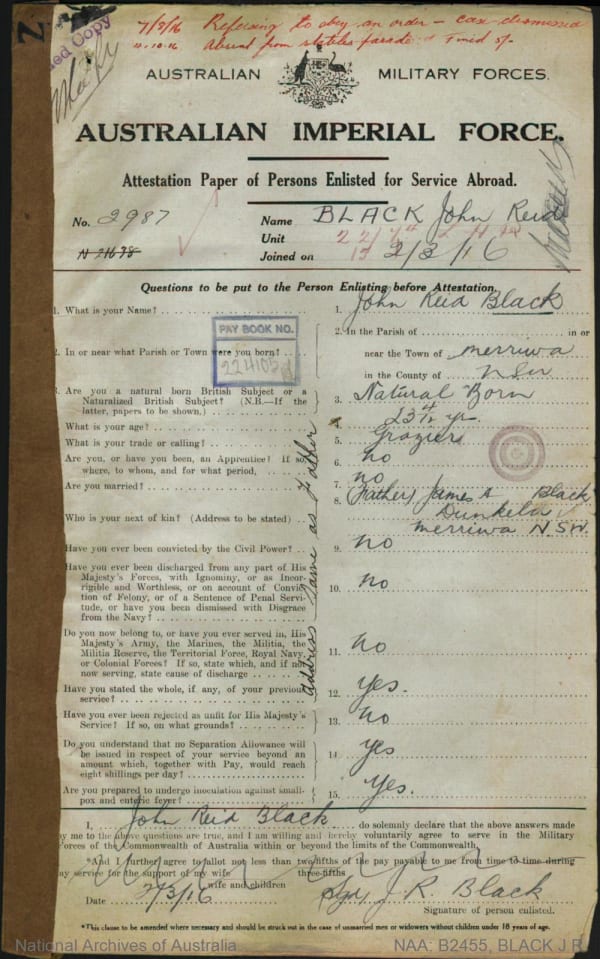 7/9/16 Refusing to obey an order - case dismissed
11.10.16 Absent from stables parade Fined 5/-
AUSTRALIAN MILITARY FORCES.
AUSTRALIAN IMPERIAL FORCE.
Attestation Paper of Persons Enlisted for Service Abroad.
No. 2987 Name BLACK John Reid
N 21698 Unit
Joined on 2/3/16
Questions to be put to the Person Enlisting before Attestation.
1. What is your Name? 1. John Reid Black
2. In or near what Parish or Town were you born? 2. In the Parish of in or
near the Town of Merriwa
in the County of NSW
PAY BOOK NO.
224105
3. Are you a natural born British Subject or a
Naturalized British Subject? (N.B.—If the
latter, papers to be shown.) 3. Natural Born
What is your age? 4. 23 4/12 yrs.
What is your trade or calling? 5. Grazier
Are you, or have you been, an Apprentice? If so,
where, to whom, and for what period, 6. no
Are you married? 7. no
Who is your next of kin? (Address to be stated) 8. (Father) James A Black
Dunkeld
Merriwa N.S.W.
address same as Father
Have you ever been convicted by the Civil Power? 9. no
Have you ever been discharged from any part of His
Majesty's Forces, with Ignominy, or as Incor-
rigible and Worthless, or on account of Convic-
tion of Felony, or of a Sentence of Penal Servi-
tude, or have you been dismissed with Disgrace
from the Navy? 10. no
Do you now belong to, or have you ever served in, His
Majesty's Army, the Marines, the Militia, the
Militia Reserve, the Territorial Force, Royal Navy,
or Colonial Forces? If so, state which, and if not
now serving, state cause of discharge 11. no
Have you stated the whole, if any, of your previous
service? 12. yes.
Have you ever been rejected as unfit for His Majesty's
Service? If so, on what grounds? 13. no
Do you understand that no Separation Allowance will
be issued in respect of your service beyond an
amount which, together with Pay, would reach
eight shillings per day? 14. yes
Are you prepared to undergo inoculation against small-
pox and enteric fever? 15. Yes.
I, John Reid Black do solemnly declare that the above answers made
by me to the above questions are true, and I am willing and hereby voluntarily agree to serve in the Military
Forces of the Commonwealth of Australia within or beyond the limits of the Commonwealth.
*And I further agree to allot not less than two-fifths of the pay payable to me from time to time during
three-fifths
my service for the support of my wife
wife and children
Date 2/3/16 Sgd J. R. Black
Signature of person enlisted.
*This clause to be amended where necessary and should be struck out in the case of unmarried men or widowers without children under 18 years of age.
National Archives of Australia NAA: B2455, BLACK J R